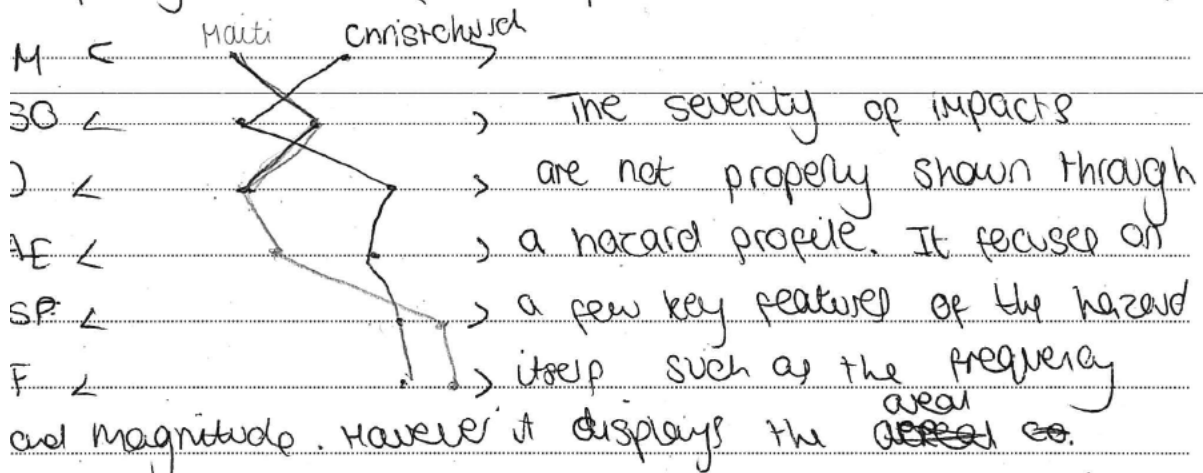 Haiti Christchurch
M < >
SO < > The severity of impacts
D < > are not properly shown through
AE < > a hazard profile. It focuses on
SP < > a few key features of the hazard
F < > itself such as the frequency
and magnitude. However it displays the areal